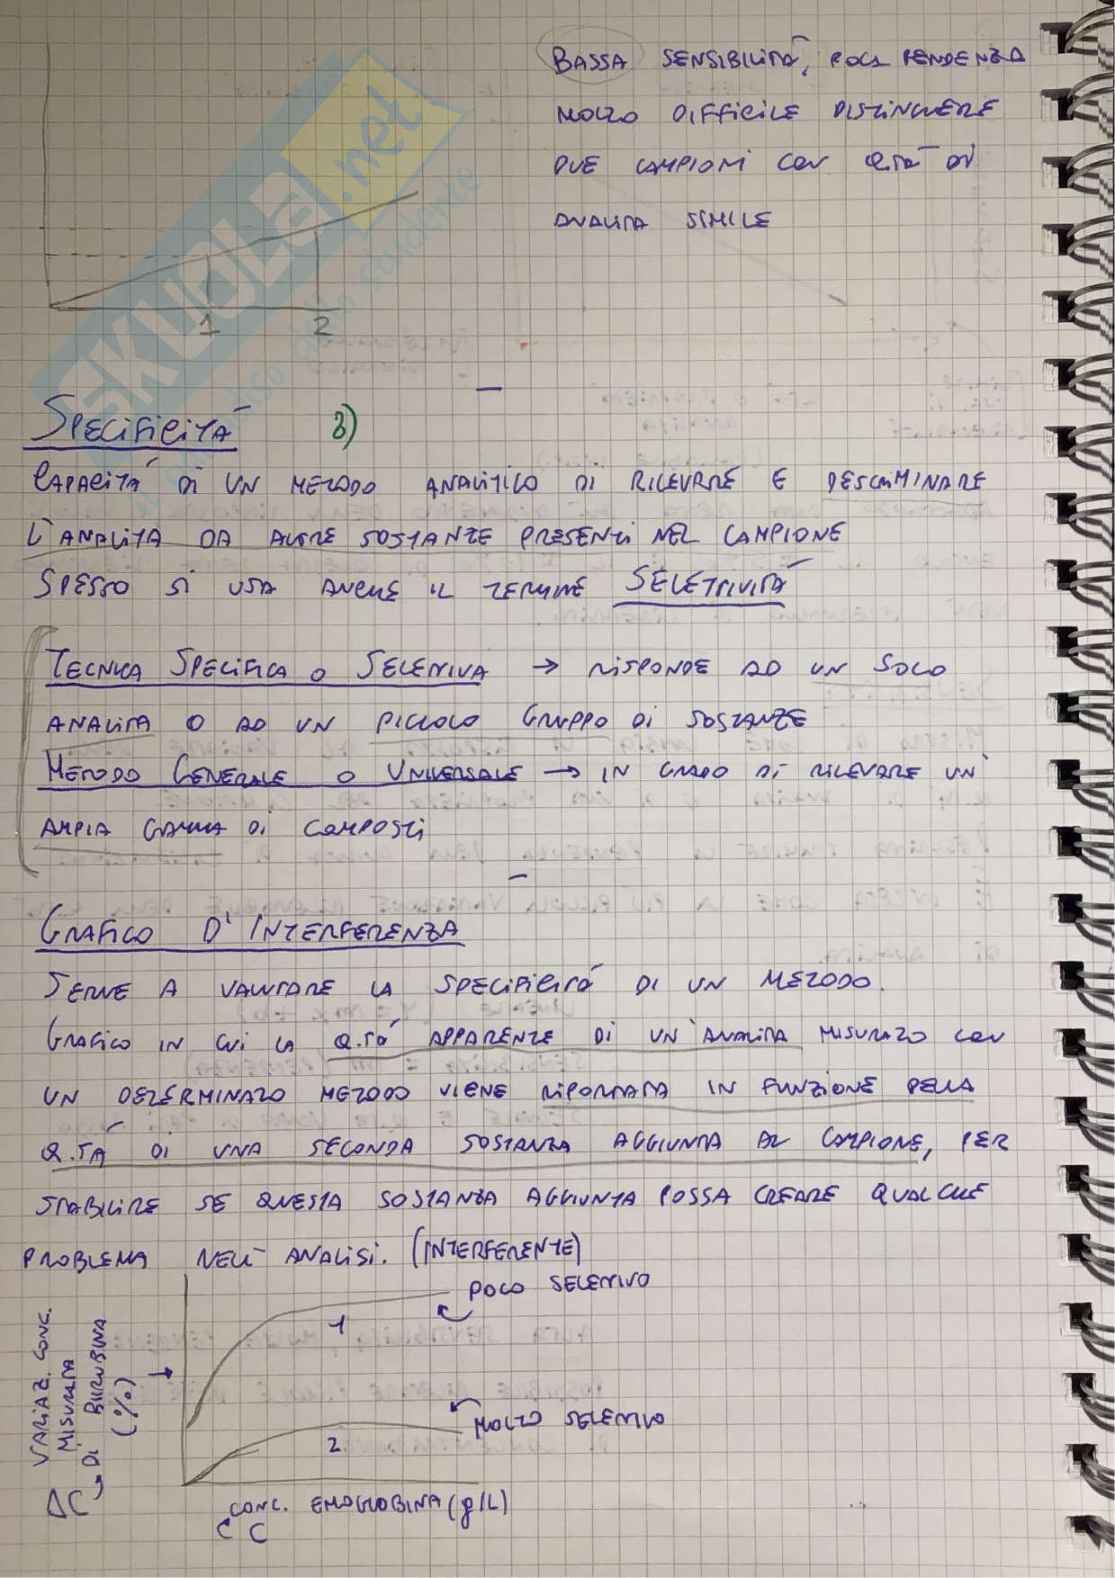 BASSA SENSIBILITÀ, POCA PENDENZA
MOLTO DIFFICILE DISTINGUERE
DUE CAMPIONI CON Q.TÀ DI
ANALITA SIMILE
SKUOLA.net
1 2
SPECIFICITÀ 3)
CAPACITÀ DI UN METODO ANALITICO DI RILEVARE E DESCRIMINARE
L'ANALITA DA ALTRE SOSTANZE PRESENTI NEL CAMPIONE
SPESSO SI USA ANCHE IL TERMINE SELETTIVITÀ
TECNICA SPECIFICA O SELETTIVA → RISPONDE AD UN SOLO
ANALITA O AD UN PICCOLO GRUPPO DI SOSTANZE
METODO GENERALE O UNIVERSALE → IN GRADO DI RILEVARE UN'
AMPIA GAMMA DI COMPOSTI
GRAFICO D'INTERFERENZA
SERVE A VALUTARE LA SPECIFICITÀ DI UN METODO.
GRAFICO IN CUI LA Q.TÀ APPARENTE DI UN'ANALITA MISURATO CON
UN DETERMINATO METODO VIENE RIPORTATA IN FUNZIONE DELLA
Q.TÀ DI UNA SECONDA SOSTANZA AGGIUNTA AL CAMPIONE, PER
STABILIRE SE QUESTA SOSTANZA AGGIUNTA POSSA CREARE QUALCHE
PROBLEMA NELL'ANALISI. (INTERFERENTE)
POCO SELETTIVO
1
MOLTO SELETTIVO
2
VARIAZ. CONC.
MISURATA
DI BILIRUBINA
(%)
ΔC
CONC. EMOGLOBINA (g/L)
C